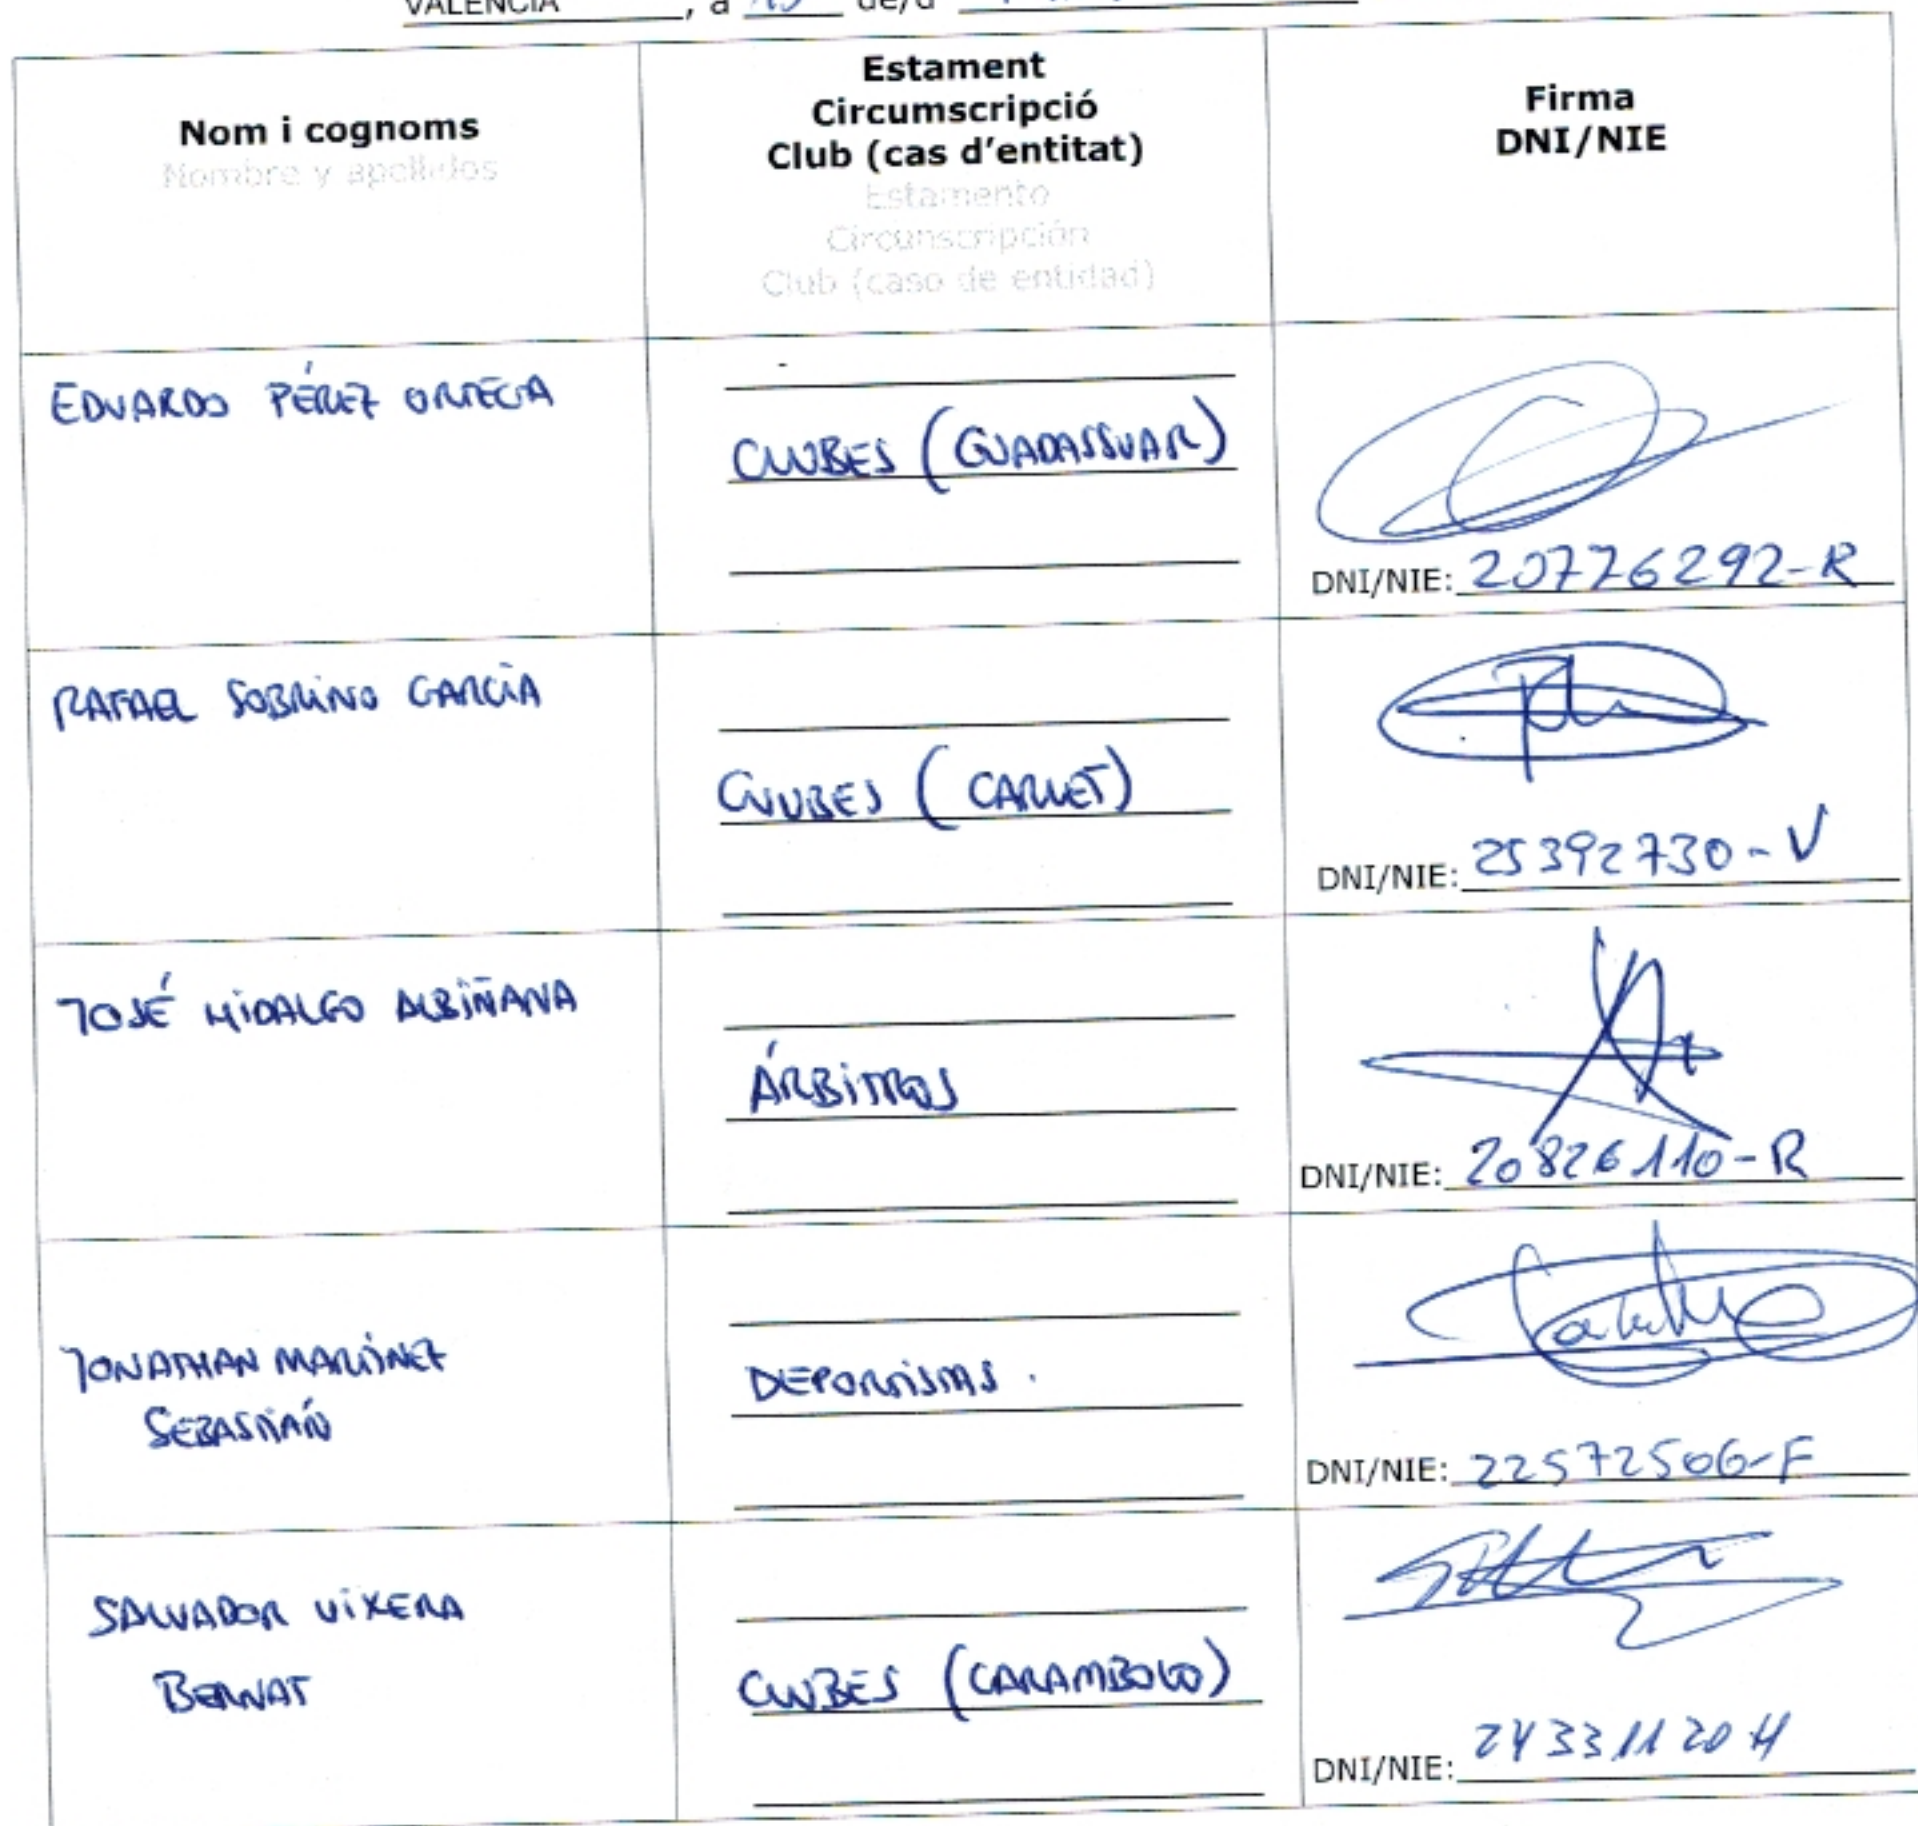 VALENCIA, a 15 de/d
Nom i cognoms
Nombre y apellidos
Estament
Circumscripció
Club (cas d'entitat)
Estamento
Circunscripción
Club (caso de entidad)
Firma
DNI/NIE
EDUARDO PÉREZ ORTEGA
CLUBES (GUADASSUAR)
DNI/NIE: 20776292-R
RAFAEL SOBRINO GARCÍA
CLUBES (CARLET)
DNI/NIE: 25392730-V
JOSÉ HIDALGO ALBIÑANA
ÁRBITROS
DNI/NIE: 20826110-R
JONATHAN MARTÍNEZ
SEBASTIÁN
DEPORTISTAS.
DNI/NIE: 22572506-F
SALVADOR VIXERA
BERNAT
CLUBES (CARAMBOLO)
DNI/NIE: 24331120H